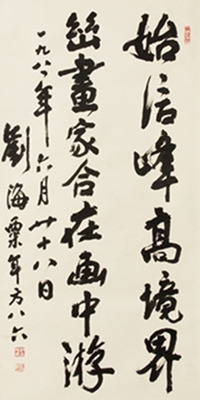 始信峰高境界
𢇍畫家合在画中游
一九八一年六月廿十八日
劉海粟年方八六